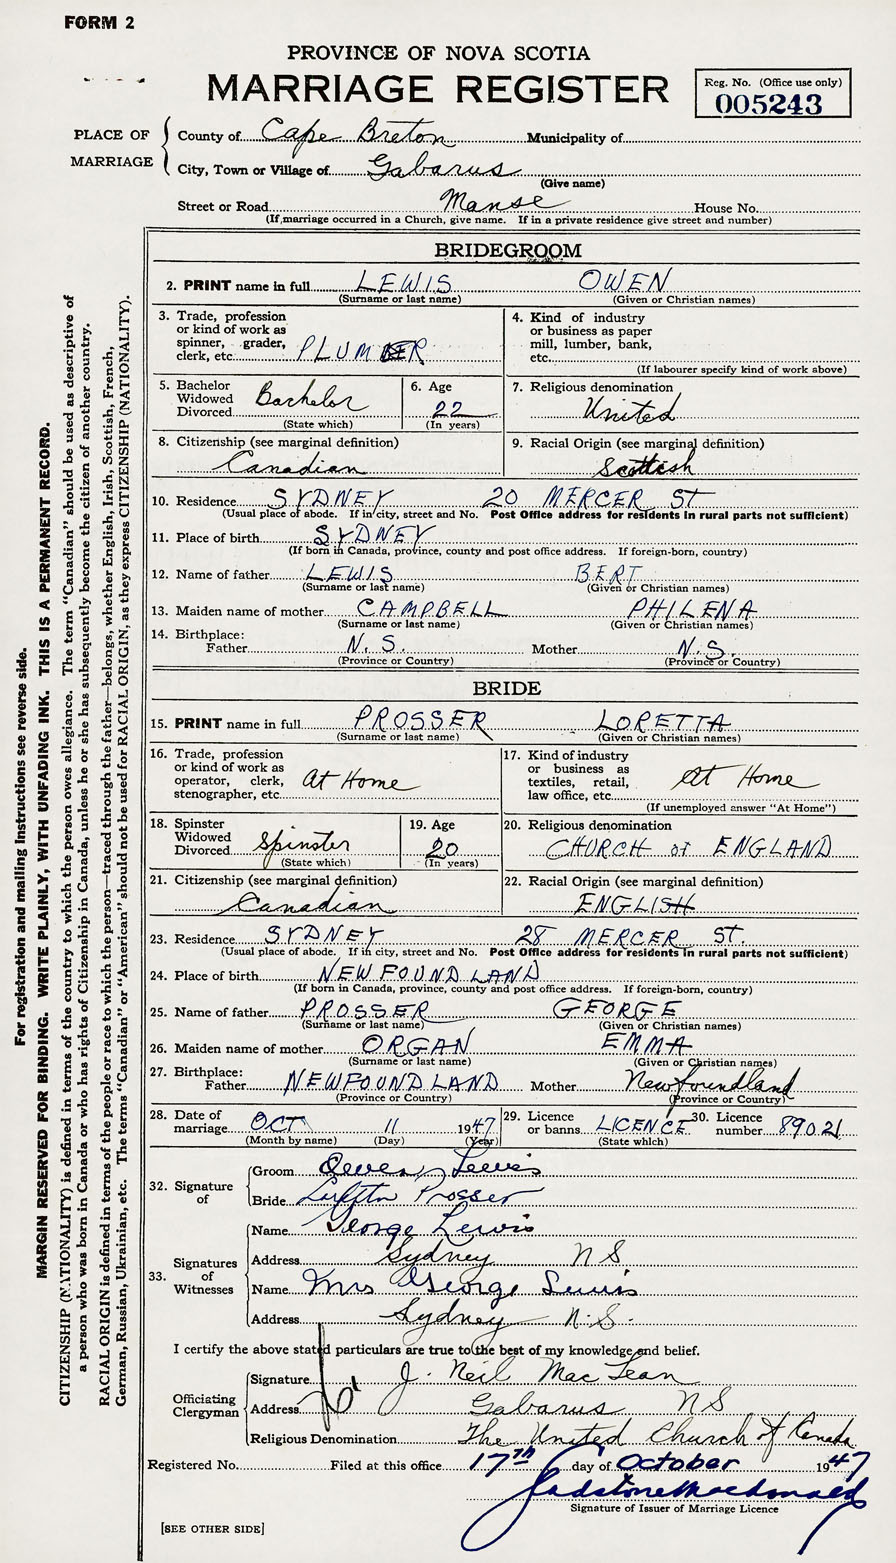 FORM 2
PROVINCE OF NOVA SCOTIA
MARRIAGE REGISTER
Reg. No. (Office use only)
005243
PLACE OF MARRIAGE
County of Cape Breton Municipality of
City, Town or Village of Gabarus
(Give name)
Street or Road Manse House No.
(If marriage occurred in a Church, give name. If in a private residence give street and number)
BRIDEGROOM
2. PRINT name in full LEWIS OWEN
(Surname or last name) (Given or Christian names)
3. Trade, profession or kind of work as spinner, grader, clerk, etc. PLUMBER
4. Kind of industry or business as paper mill, lumber, bank, etc.
(If labourer specify kind of work above)
5. Bachelor Widowed Divorced Bachelor
(State which)
6. Age 22
(In years)
7. Religious denomination United
8. Citizenship (see marginal definition) Canadian
9. Racial Origin (see marginal definition) Scottish
10. Residence SYDNEY 20 MERCER ST
(Usual place of abode. If in city, street and No. Post Office address for residents in rural parts not sufficient)
11. Place of birth SYDNEY
(If born in Canada, province, county and post office address. If foreign-born, country)
12. Name of father LEWIS BERT
(Surname or last name) (Given or Christian names)
13. Maiden name of mother CAMPBELL PHILENA
(Surname or last name) (Given or Christian names)
14. Birthplace: Father N. S. Mother N. S.
(Province or Country) (Province or Country)
BRIDE
15. PRINT name in full PROSSER LORETTA
(Surname or last name) (Given or Christian names)
16. Trade, profession or kind of work as operator, clerk, stenographer, etc. At Home
17. Kind of industry or business as textiles, retail, law office, etc. At Home
(If unemployed answer "At Home")
18. Spinster Widowed Divorced Spinster
(State which)
19. Age 20
(In years)
20. Religious denomination CHURCH of ENGLAND
21. Citizenship (see marginal definition) Canadian
22. Racial Origin (see marginal definition) ENGLISH
23. Residence SYDNEY 28 MERCER ST.
(Usual place of abode. If in city, street and No. Post Office address for residents in rural parts not sufficient)
24. Place of birth NEWFOUNDLAND
(If born in Canada, province, county and post office address. If foreign-born, country)
25. Name of father PROSSER GEORGE
(Surname or last name) (Given or Christian names)
26. Maiden name of mother ORGAN EMMA
(Surname or last name) (Given or Christian names)
27. Birthplace: Father NEWFOUNDLAND Mother Newfoundland
(Province or Country) (Province or Country)
28. Date of marriage OCT 11 1947
(Month by name) (Day) (Year)
29. Licence or banns LICENCE
(State which)
30. Licence number 89021
32. Signature of
Groom Owen Lewis
Bride Loretta Prosser
33. Signatures of Witnesses
Name George Lewis
Address Sydney N S
Name Mrs George Lewis
Address Sydney N. S.
I certify the above stated particulars are true to the best of my knowledge and belief.
Officiating Clergyman
Signature J. Neil MacLean
Address Gabarus N S
Religious Denomination The United Church of Canada
Registered No. Filed at this office 17th day of October 1947
Signature of Issuer of Marriage Licence
[SEE OTHER SIDE]
For registration and mailing instructions see reverse side.
MARGIN RESERVED FOR BINDING. WRITE PLAINLY, WITH UNFADING INK. THIS IS A PERMANENT RECORD.
CITIZENSHIP (NATIONALITY) is defined in terms of the country to which the person owes allegiance. The term "Canadian" should be used as descriptive of
a person who was born in Canada or who has rights of Citizenship in Canada, unless he or she has subsequently become the citizen of another country.
RACIAL ORIGIN is defined in terms of the people or race to which the person—traced through the father—belongs, whether English, Irish, Scottish, French,
German, Russian, Ukrainian, etc. The terms "Canadian" or "American" should not be used for RACIAL ORIGIN, as they express CITIZENSHIP (NATIONALITY).